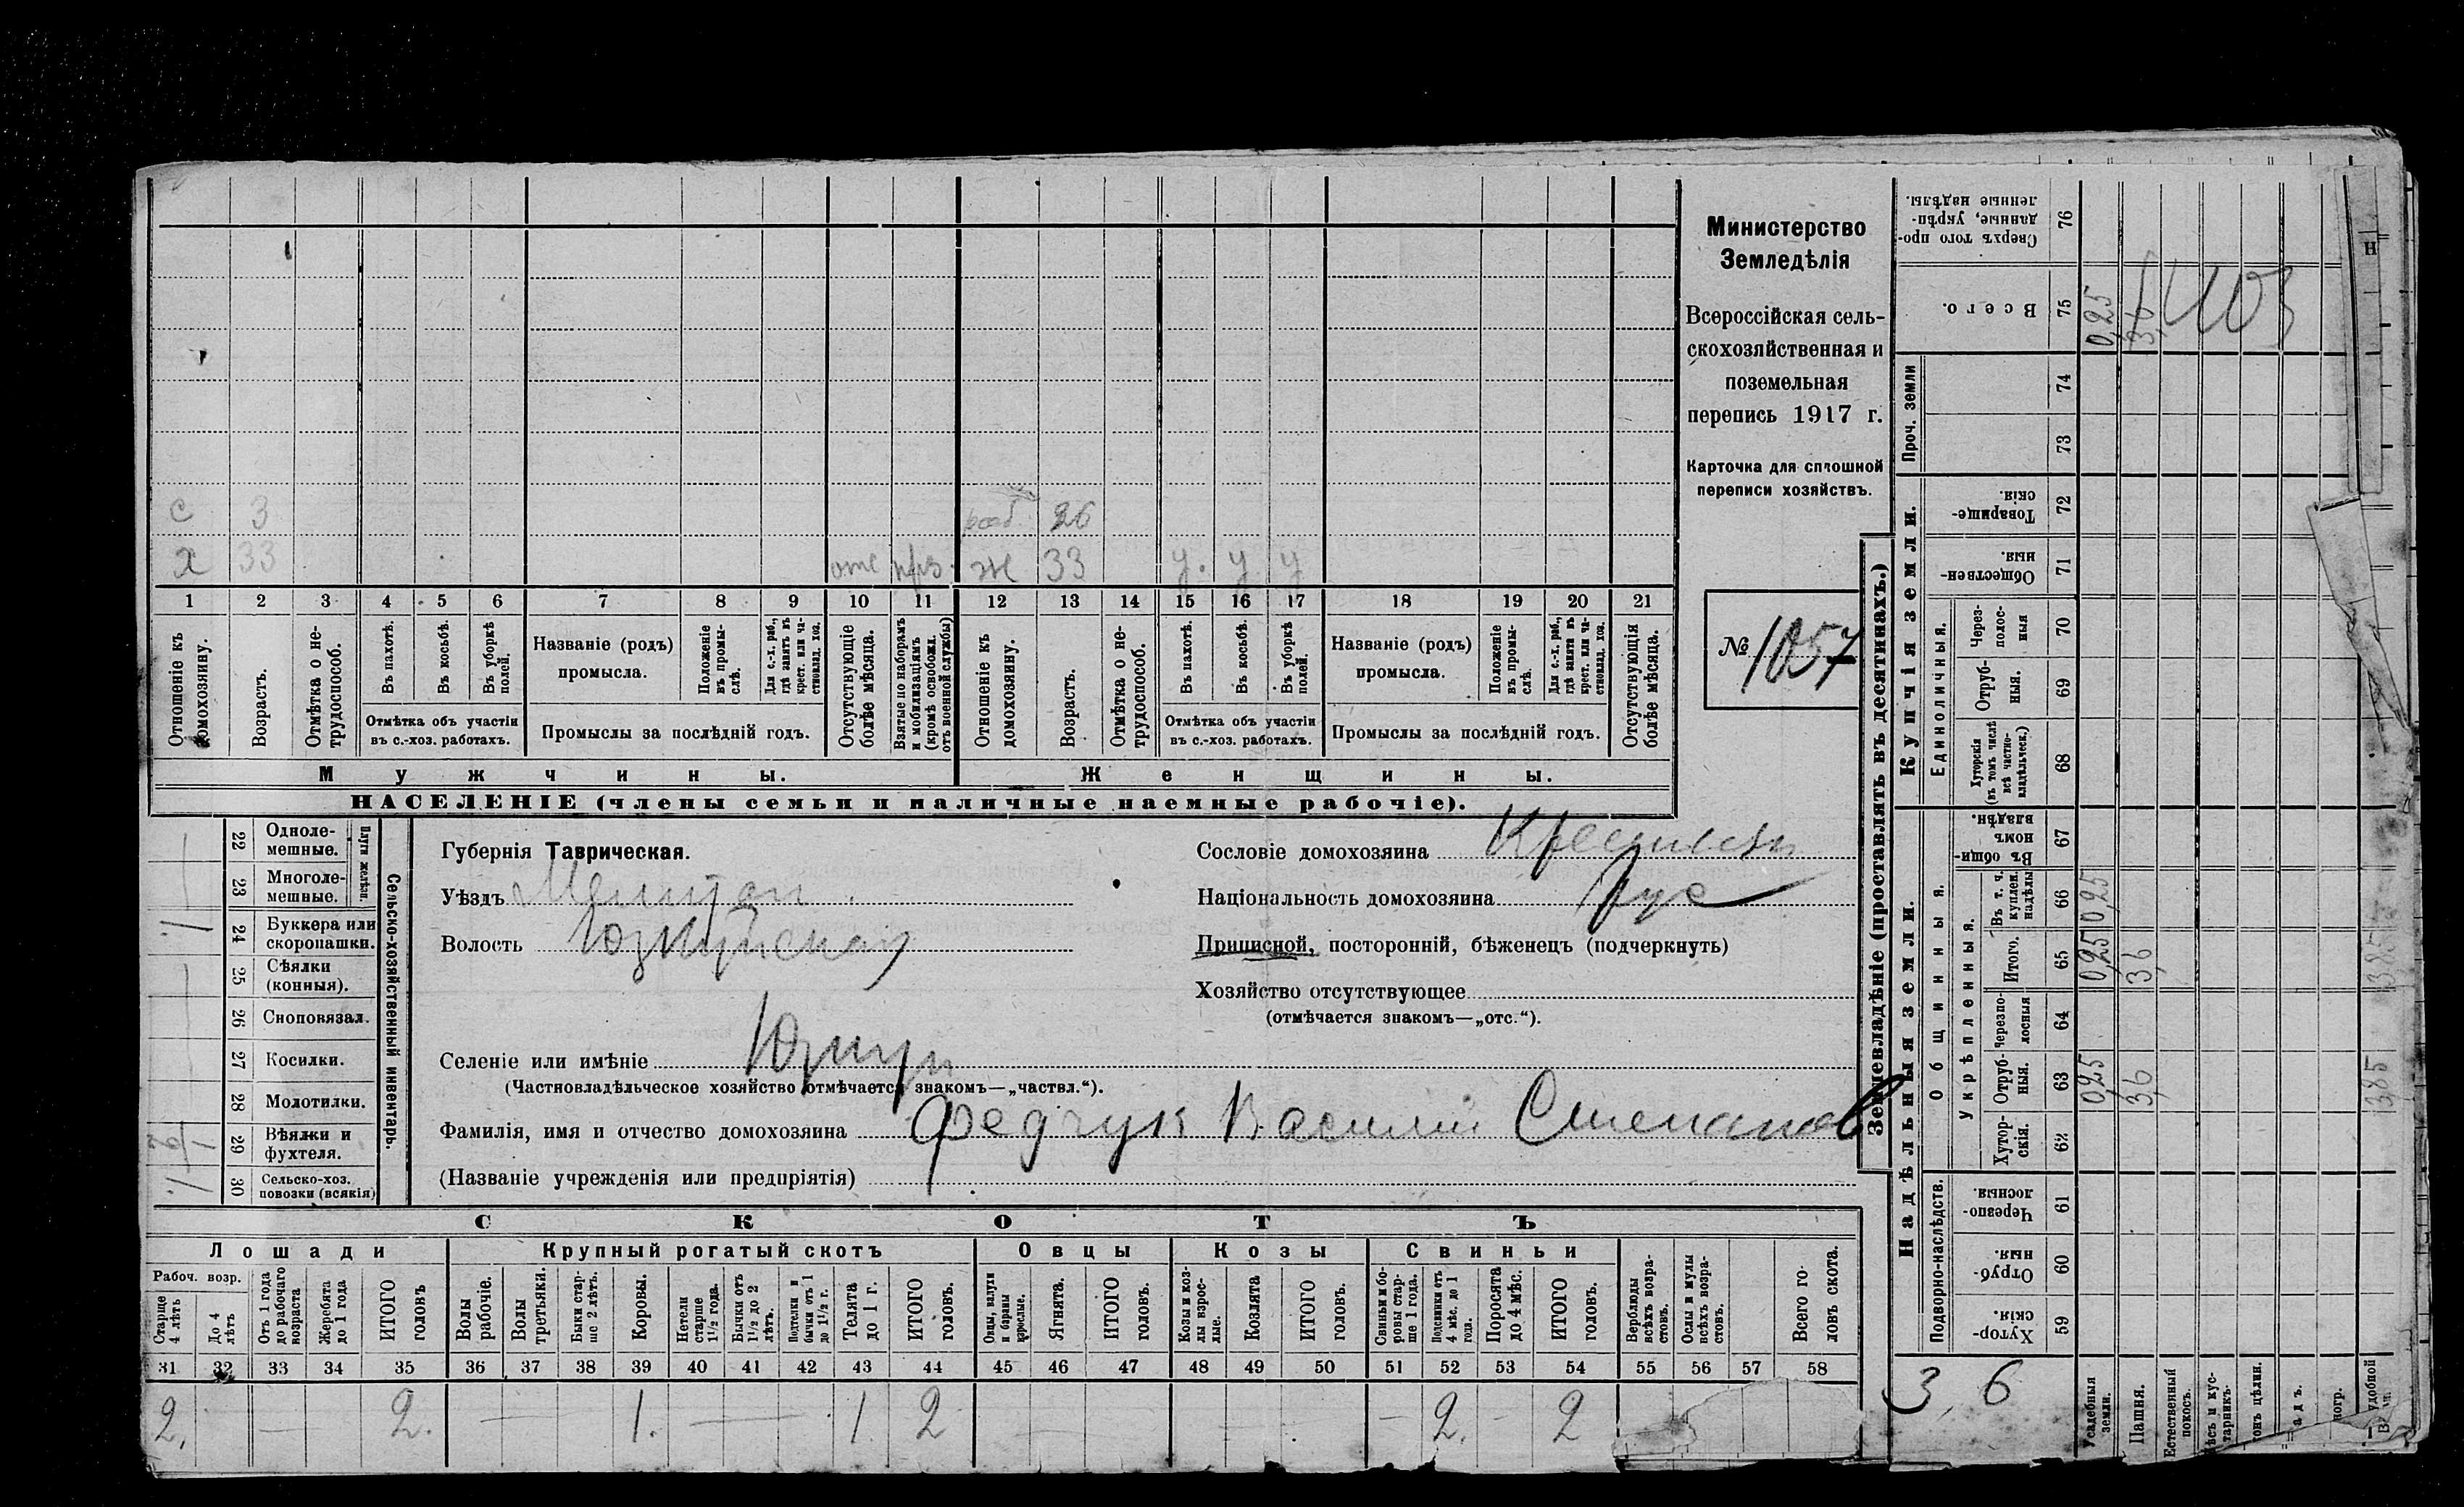 Министерство
Земледѣлія
Всероссійская сель-
скохозяйственная и
поземельная
перепись 1917 г.
Карточка для сплошной
переписи хозяйствъ.
№ 1057
с 3 раб. 26
х 33 отс ж 33 у. у у
1 2 3 4 5 6 7 8 9 10 11 12 13 14 15 16 17 18 19 20 21
Отношеніе къ домохозяину.
Возрастъ.
Отмѣтка о не-трудоспособ.
Въ пахотѣ.
Въ косьбѣ.
Въ уборкѣ полей.
Отмѣтка объ участіи въ с.-хоз. работахъ.
Названіе (родъ) промысла.
Положеніе въ промы-слѣ.
Для с.-х. раб., гдѣ занятъ въ крест. или ча-стновлад. хоз.
Промыслы за послѣдній годъ.
Отсутствующіе болѣе мѣсяца.
Взятые по наборамъ и мобилизаціямъ (кромѣ освобожд. отъ военной службы)
Отношеніе къ домохозяину.
Возрастъ.
Отмѣтка о не-трудоспособ.
Въ пахотѣ.
Въ косьбѣ.
Въ уборкѣ полей.
Отмѣтка объ участіи въ с.-хоз. работахъ.
Названіе (родъ) промысла.
Положеніе въ промы-слѣ.
Для с.-х. раб., гдѣ занятъ въ крест. или ча-стновлад. хоз.
Промыслы за послѣдній годъ.
Отсутствующія болѣе мѣсяца.
Мужчины. Женщины.
НАСЕЛЕНІЕ (члены семьи и наличные наемные рабочіе).
22 Одноле-мешные.
23 Многоле-мешные.
Плуги желѣзн.
24 Буккера или скоропашки.
25 Сѣялки (конныя).
26 Сноповязал.
27 Косилки.
28 Молотилки.
29 Вѣялки и фухтеля.
30 Сельско-хоз. повозки (всякія)
Сельско-хозяйственный инвентарь.
Губернія Таврическая.
Уѣздъ Мелитоп
Волость
Селеніе или имѣніе
(Частновладѣльческое хозяйство отмѣчается знакомъ—„частвл.“).
Фамилія, имя и отчество домохозяина Федчук Василий Степанов
(Названіе учрежденія или предпріятія)
Сословіе домохозяина
Національность домохозяина Рус
Приписной, посторонній, бѣженецъ (подчеркнуть)
Хозяйство отсутствующее
(отмѣчается знакомъ—„отс.“).
СКОТЪ
Лошади Крупный рогатый скотъ Овцы Козы Свиньи
Рабоч. возр.
Старше 4 лѣтъ
До 4 лѣтъ
Отъ 1 года до рабочаго возраста
Жеребята до 1 года
ИТОГО головъ
Волы рабочіе.
Волы третьяки.
Быки стар-ше 2 лѣтъ.
Коровы.
Нетели старше 1½ года.
Бычки отъ 1½ до 2 лѣтъ.
Подтелки и бычки отъ 1 до 1½ г.
Телята до 1 г.
ИТОГО головъ.
Овцы, валухи и бараны взрослые.
Ягнята.
ИТОГО головъ.
Козы и коз-лы взрос-лые.
Козлята
ИТОГО головъ.
Свиньи и бо-ровы стар-ше 1 года.
Подсвинки отъ 4 мѣс. до 1 года.
Поросята до 4 мѣс.
ИТОГО головъ.
Верблюды всѣхъ возра-стовъ.
Ослы и мулы всѣхъ возра-стовъ.
Всего го-ловъ скота.
31 32 33 34 35 36 37 38 39 40 41 42 43 44 45 46 47 48 49 50 51 52 53 54 55 56 57 58
2. — 2. — 1. — 1 2 — — — 2. - 2
Землевладѣніе (проставлять въ десятинахъ.)
Надѣльныя земли. Купчія земли.
Подворно-наслѣдств.
Общинныя.
Укрѣпленныя.
Единоличныя.
Проч. земли
Сверхъ того про-данные, укрѣп-ленные надѣлы. 76
Всего. 75 0,25 3,6
74
73
Товарище-скія. 72
Обществен-ныя. 71
Через-полос-ныя 70
Отруб-ныя. 69
Хуторскія (въ томъ числѣ всѣ частно-владѣльческ.) 68
Въ общин-номъ владѣн. 67
Въ т. ч. куплен. надѣлы 66 0,25
Итого. 65 0,25 3,6
Черезпо-лосныя 64
Отруб-ныя. 63 0,25 3,6 3,85
Хутор-скія. 62
Черезпо-лосныя. 61
Отруб-ныя. 60
Хутор-скія. 59
3,6
Усадебныя земли.
Пашня.
Естественный покосъ.